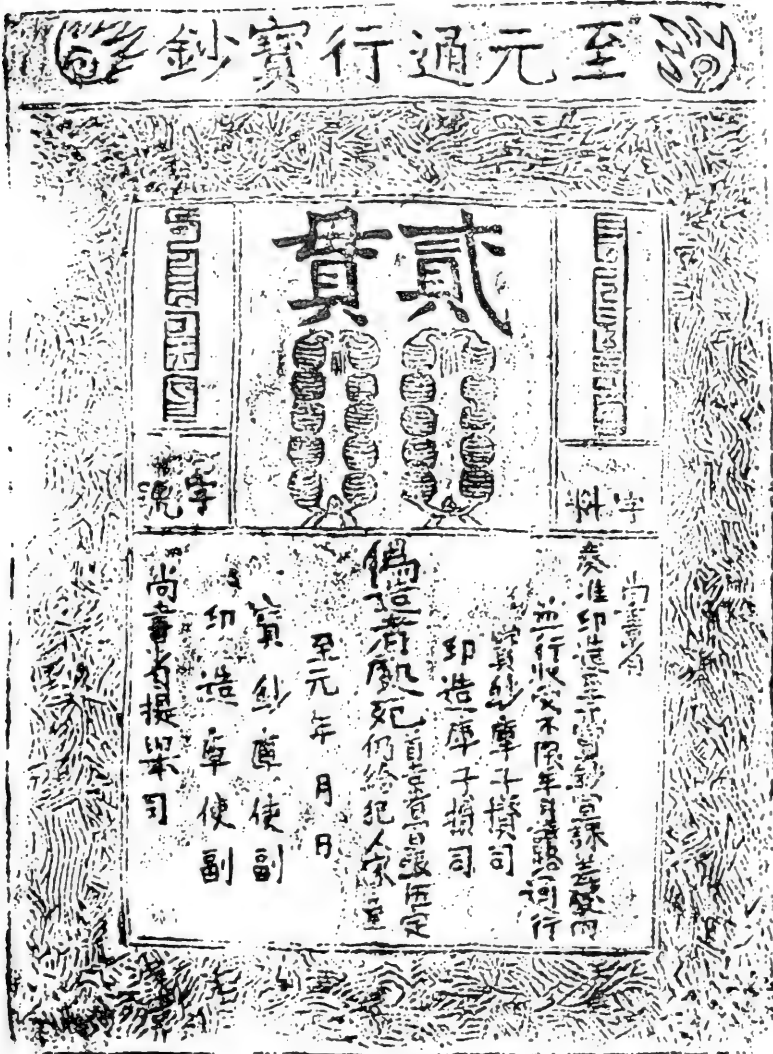 至元通行寶鈔
貳貫
字料
字號
尚書省
奏准印造至元寶鈔宣課差發內
並行收受不限年月諸路通行
寶鈔庫子攢司
印造庫子攢司
偽造者處死
首告者賞銀伍定
仍給犯人家產
至元 年 月 日
寶鈔庫使副
印造庫使副
尚書省提舉司